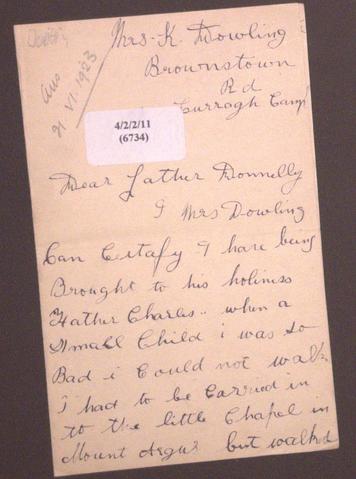 Mrs. K. Dowling
Brownstown
Rd
Curragh Camp
Ans
21 VI. 1923
4/2/2/11
(6734)
Dear Father Donnelly
I Mrs Dowling
Can Certafy I have being
Brought to his holiness
Father Charles.. when a
Small Child i was so
Bad i Could not walk
i had to be Carried in
to the little Chapel in
Mount Argus but walked